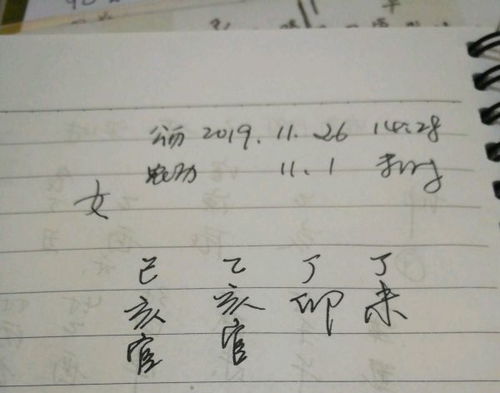 公历 2019. 11. 26 14:28
农历 11. 1 未时
女
己 乙 丁 丁
亥 亥 卯 未
官 官